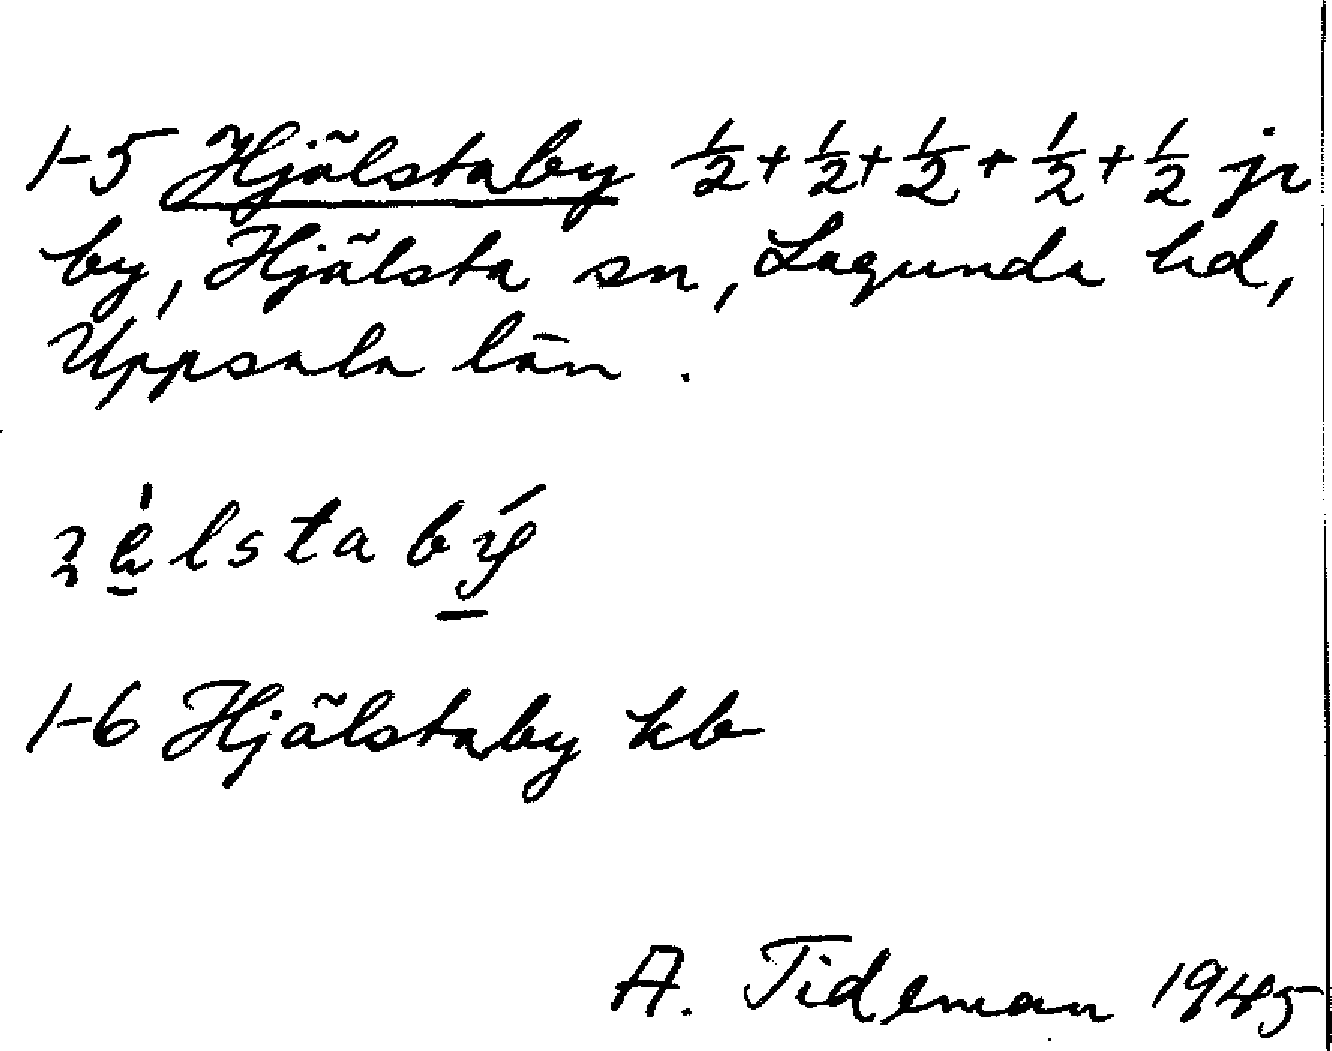 1-5 Hjälstaby ½+½+½+½+½ jr
by, Hjälsta sn, Lagunda hd,
Uppsala län.
1-6 Hjälstaby kb
A. Tideman 1945